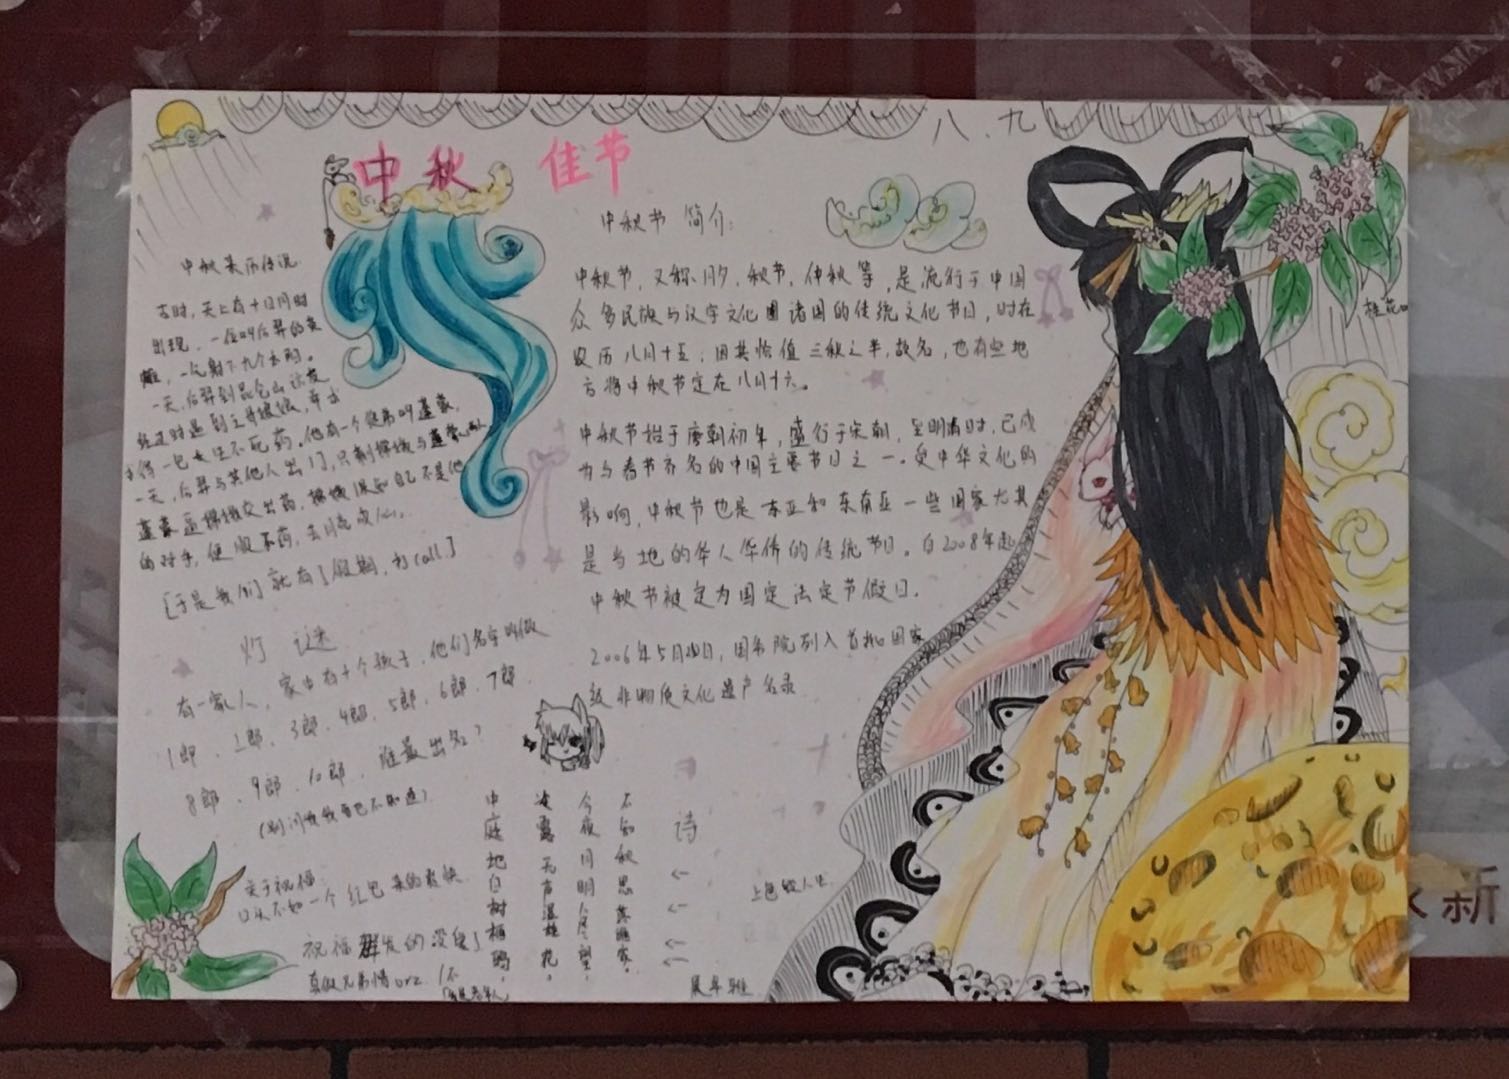 八、九
中秋 佳节
中秋来历传说
古时,天上有十日同时
出现,一位叫后羿的英
雄,一气射下九个太阳。
一天,后羿到昆仑山访友
经过时遇到王母娘娘,幸或
求得一包长生不死药。他有一个徒弟叫蓬蒙,
一天,后羿与其他人出门,只剩嫦娥与蓬蒙
蓬蒙逼嫦娥交出药,嫦娥深知自己不是他
的对手,便服下药,去月亮成仙。
[于是我们就有了假期,打call]
灯谜
有一家人,家出有十个孩子,他们名字叫做
1郎、2郎、3郎、4郎、5郎、6郎、7郎
8郎、9郎、10郎,谁最出名?
(别问我我自己不知道)
关于祝福
口头不如一个红包来的爽快
祝福群发的没意]
真假兄弟情orz.(不
中秋节 简介:
中秋节,又称月夕,秋节,仲秋等,是流行于中国
众多民族与汉字文化圈诸国的传统文化节日,时在
农历八月十五;因其恰值三秋之半,故名,也有些地
方将中秋节定在八月十六。
中秋节始于唐朝初年,盛行于宋朝,至明清时,已成
为与春节齐名的中国主要节日之一。受中华文化的
影响,中秋节也是东亚和东南亚一些国家尤其
是当地的华人华侨的传统节日。自2008年起
中秋节被定为国定法定节假日.
2006年5月20日,国务院列入首批国家
级非物质文化遗产名录
诗
中庭地白树栖鸦,
冷露无声湿桂花。
今夜月明人尽望,
不知秋思落谁家。
上色毁人生
桂花
新